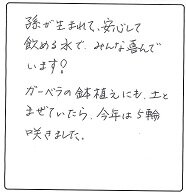 孫が生まれて、安心して
飲める水で、みんな喜んで
います!
ガーベラの鉢植えにも、土と
まぜていたら、今年は5輪
咲きました。